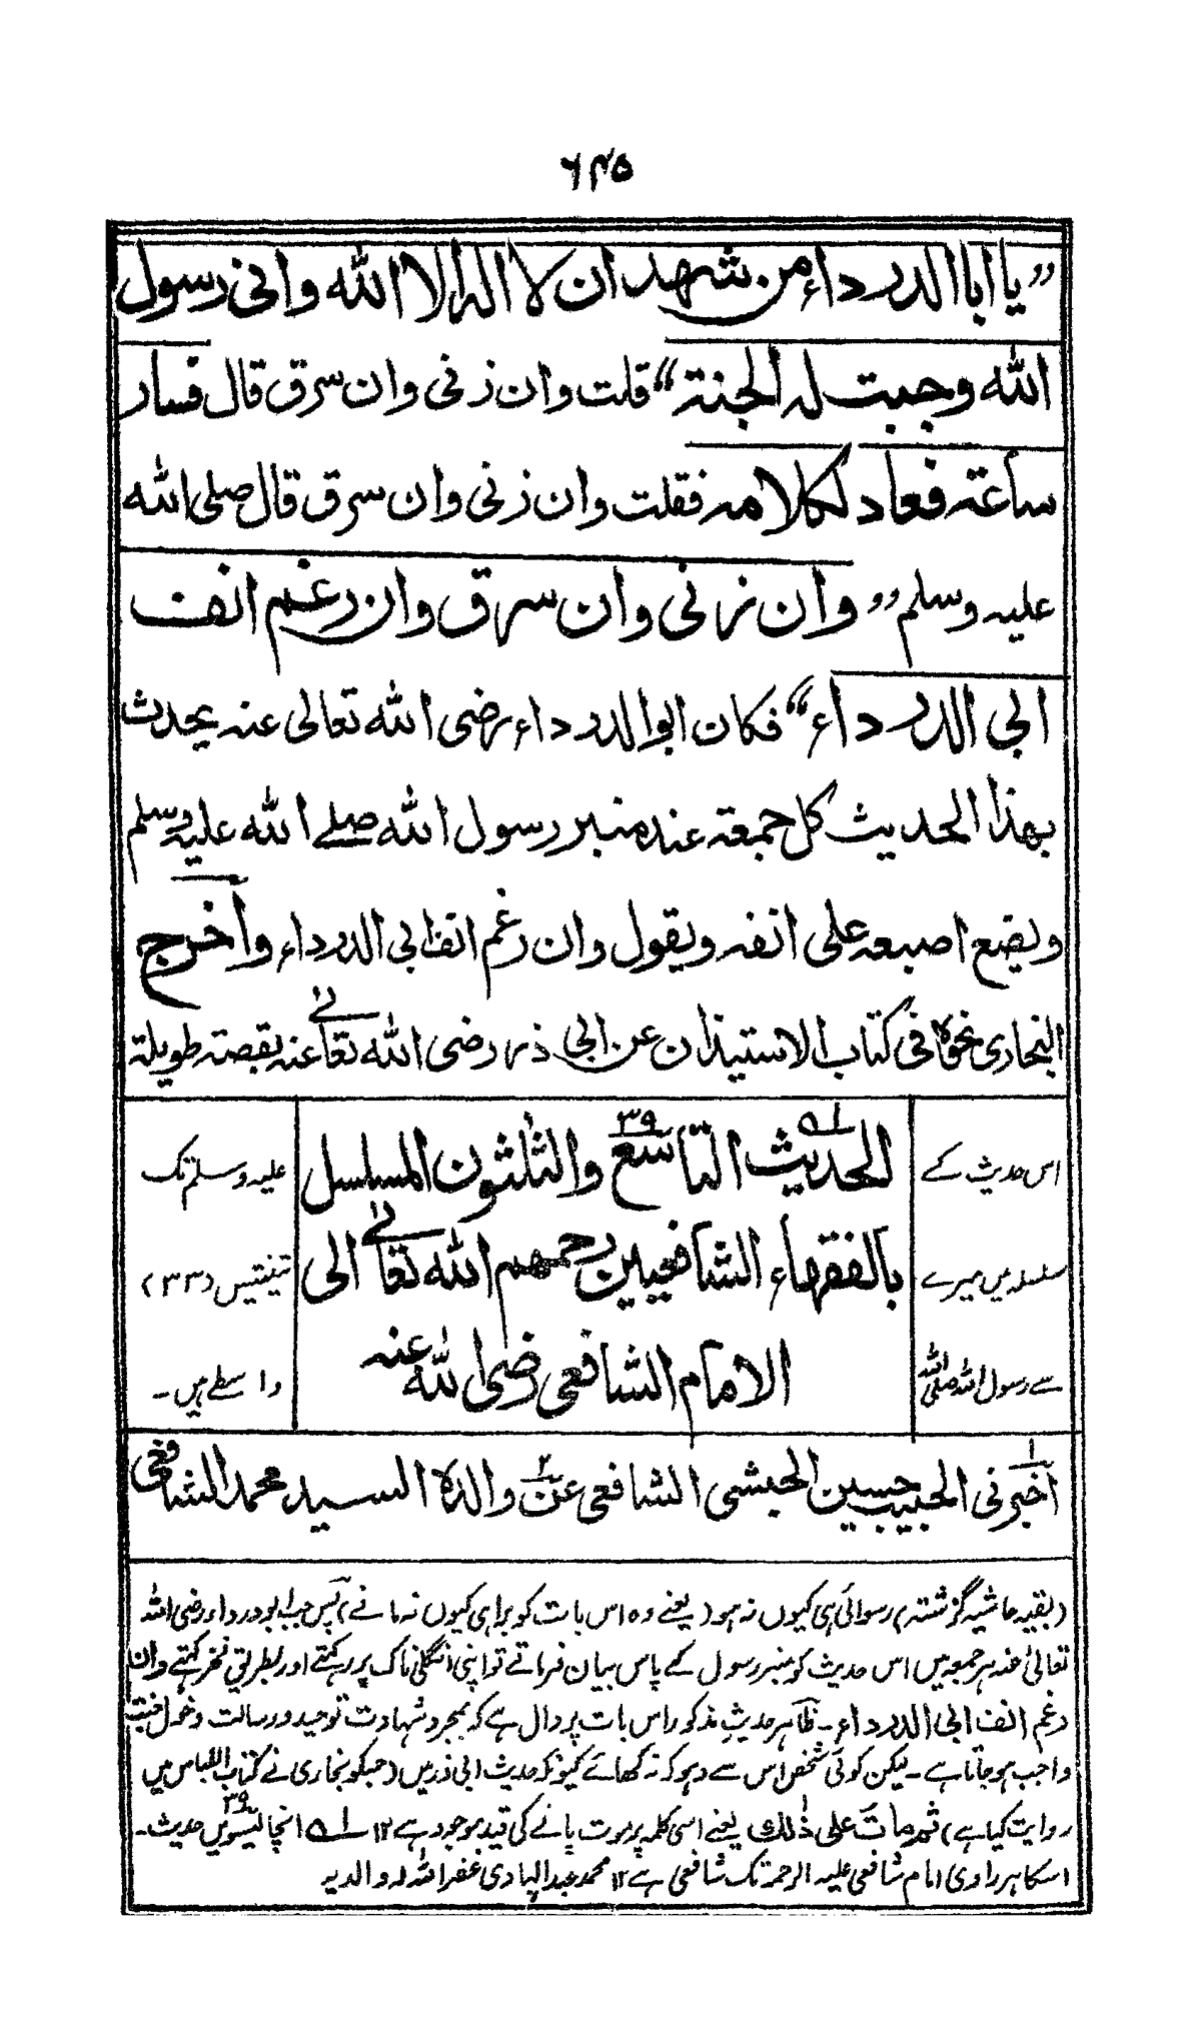 ۶۴۵
”یا ابا الدرداء من شهد ان لا اله الا الله وانی رسول
الله وجبت له الجنة“ قلت وان زنی وان سرق قال فسار
ساعة فعاد لکلامه فقلت وان زنی وان سرق قال صلی الله
علیه وسلم ”وان زنی وان سرق وان رغم انف
ابی الدرداء“ فکان ابو الدرداء رضی الله تعالی عنه یحدث
بهذا الحدیث کل جمعة عند منبر رسول الله صلے الله علیه وسلم
ویضع اصبعه علی انفه ویقول وان رغم انف ابی الدرداء واخرج
البخاری نحوه فی کتاب الاستیذان عن ابی ذر رضی الله تعالے عنه بقصة طویلة
اس حدیث کے
سلسلہ میں میرے
سے رسول اللہ صلی اللہ
الحدیث ؎۱ التاسع ۳۹ والثلثون المسلسل
بالفقهاء الشافعیین رحمهم الله تعالے الی
الامام الشافعی رضی الله عنه
علیہ وسلم تک
تینتیس (۳۳)
واسطے ہیں۔
اخبرنی ۱ الحبیب حسین الحبشی الشافعی عن ۲ والده السید محمد الشافعی
(بقیہ حاشیہ گزشتہ) رسوائی ہی کیوں نہ ہو (یعنے وہ اس بات کو برا ہی کیوں نہ مانے) پس جب ابو درداء رضی اللہ
تعالیٰ عنہ ہر جمعہ میں اس حدیث کو منبر رسول کے پاس بیان فرماتے تو اپنی انگلی ناک پر رکھتے اور بطریق فخر کہتے وان
رغم انف ابی الدرداء۔ ظاہر حدیث مذکور اس بات پر دال ہے کہ بمجرد شہادت توحید و رسالت دخول جنت
واجب ہو جاتا ہے۔ لیکن کوئی شخص اس سے دہوکہ نہ کھائے کیونکہ حدیث ابی ذر میں (جسکو بخاری نے کتاب اللباس میں
روایت کیا ہے) ثم مات علی ذٰلك یعنے اسی کلمہ پر موت پانے کی قید موجود ہے ۱۲ ؎۱ انچالیسویں ۳۹ حدیث۔
اسکا ہر راوی امام شافعی علیہ الرحمۃ تک شافعی ہے ۱۲ محمد عبد الہادی غفر اللہ لہ و الدیہ